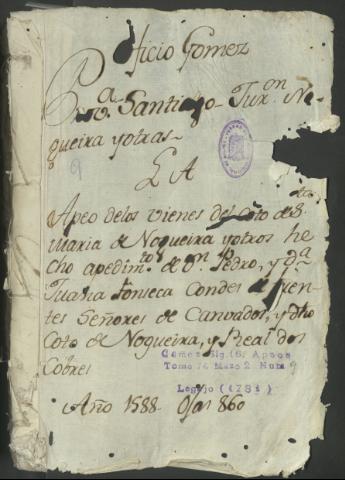 Oficio Gomez
Prov.a Santiago Jur.on No-
gueira y otras
9
L A
Apeo de los vienes del Coto de S.ta
Maria de Nogueira y otros he
cho a pedim.to de d.n Pedro, y d.a
Juana Fonseca Condes de fuen-
tes Señores de Canvados, y dho
Coto de Nogueira, y Real dos
Cobres
Gomez Sig. 16, Apeos
Tomo 74 Mazo 2 Num 9
Legajo (4781)
Año 1588 Ojas 860